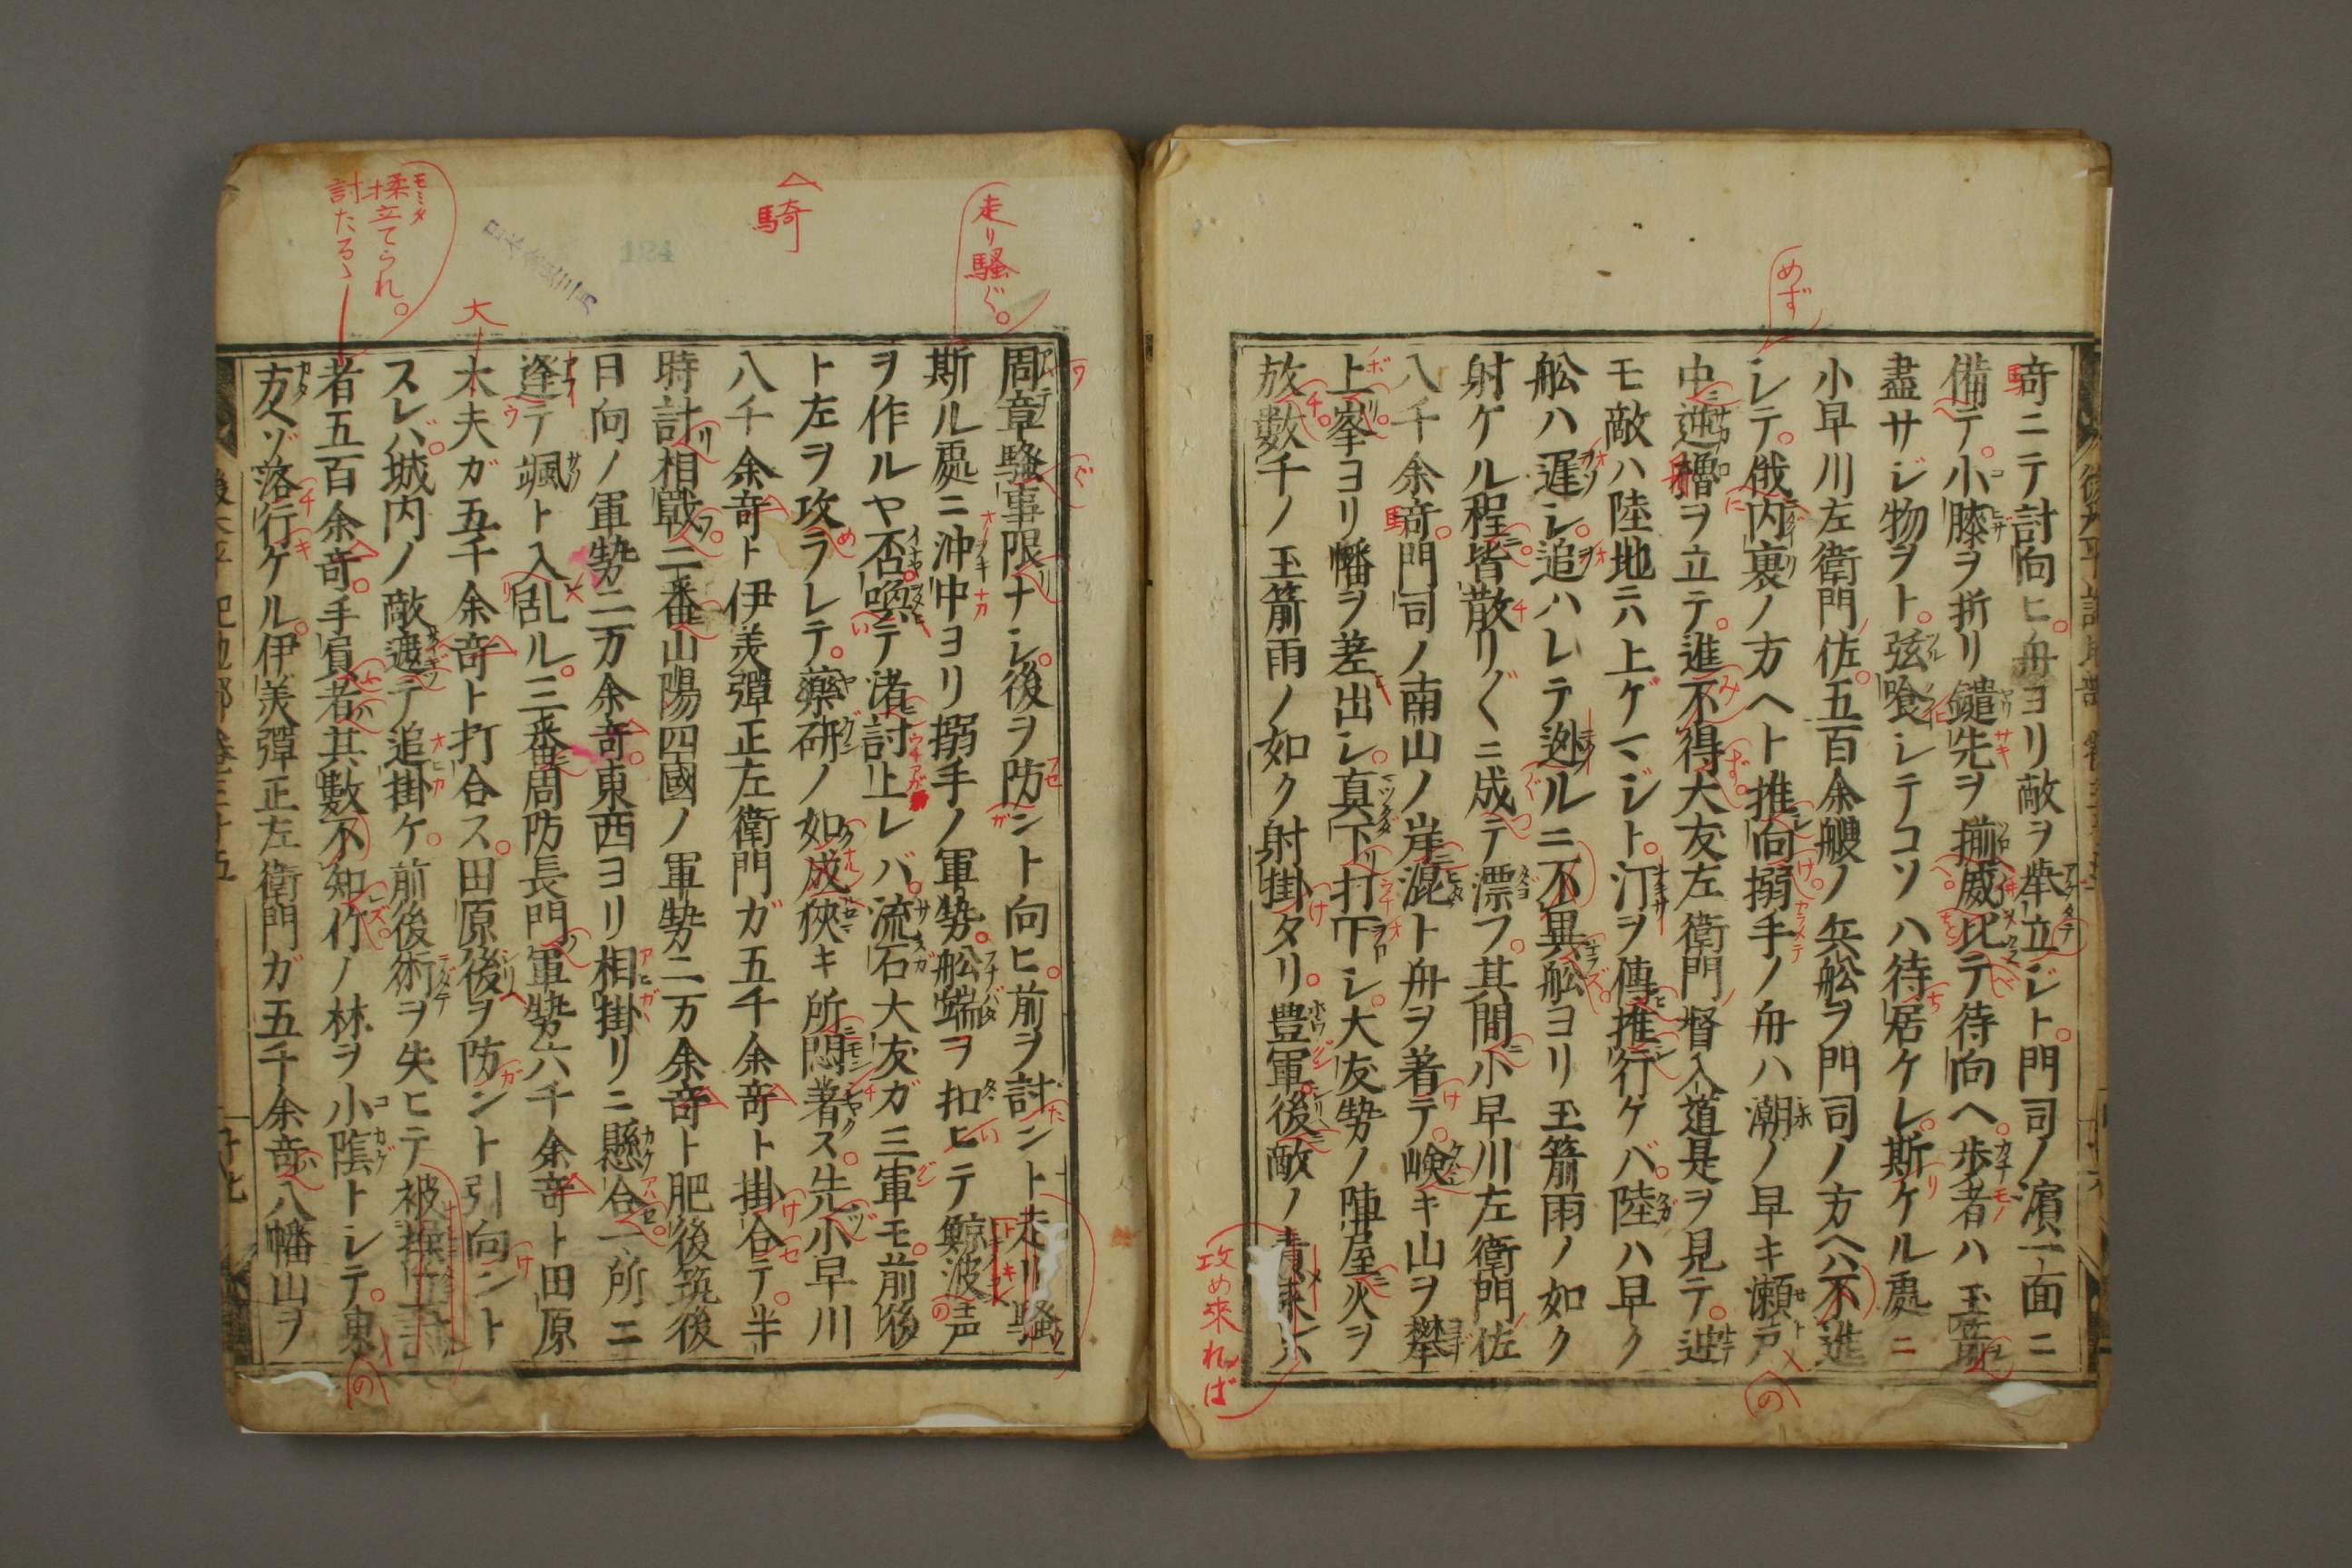 奇ニテ討向ヒ舟ヨリ敵ヲ挙立ジト門司ノ濵一面ニ
備テ小膝ヲ折リ鑓先ヲ揃威比テ待向ヘ歩者ハ玉箭
盡サジ物ヲト弦喰シテコソハ待居ケレ斯ケル處ニ
小早川左衛門佐五百余艘ノ兵舩ヲ門司ノ方ヘハ不進
シテ俄内裏ノ方ヘト推向搦手ノ舟ハ潮ノ早キ瀬戸
中逆櫓ヲ立テ進不得大友左衛門督入道是ヲ見テ迚
モ敵ハ陸地ニハ上ゲマジト汀ヲ傳推行ケバ陸ハ早ク
舩ハ遅シ追ハレテ迯ルニ不異舩ヨリ玉箭雨ノ如ク
射ケル程皆散リ〲ニ成テ漂フ其間小早川左衛門佐
八千余奇門司ノ南山ノ岸混ト舟ヲ着テ嶮キ山ヲ攀
上峯ヨリ幡ヲ差出シ真下リ打下シ大友勢ノ陣屋火ヲ
放数千ノ玉箭雨ノ如ク射掛タリ豊軍後敵ノ責来レハ
めず
攻め来れば
周章騒事限ナシ後ヲ防ント向ヒ前ヲ討ント走リ騒
斯ル處ニ沖中ヨリ搦手ノ軍勢舩端ヲ扣ヒテ鯨波声
ヲ作ルヤ否喚テ渚討上レバ流石大友ガ三軍モ前後
ト左ヲ攻ラレテ藥研ノ如成狹キ所悶著ス先小早川
八千余奇ト伊美彈正左衛門ガ五千余奇ト掛合テ半
時計相戰二番山陽四國ノ軍勢二万余奇ト肥後筑後
日向ノ軍勢二万余奇東西ヨリ相掛リニ懸合一所ニ
逢テ颯ト入乱ル三番周防長門軍勢六千余奇ト田原
太夫ガ五千余奇ト打合ス田原後ヲ防ント引向ント
スレバ城内ノ敵遮テ追掛ケ前後術ヲ失ヒテ被揉立討
者五百余奇手負者其數不知竹ノ林ヲ小陰トシテ東
方ヘゾ落行ケル伊美彈正左衛門ガ五千余奇八幡山ヲ
走り騒ぐ。
騎
大
揉立てられ。
討たるゝ